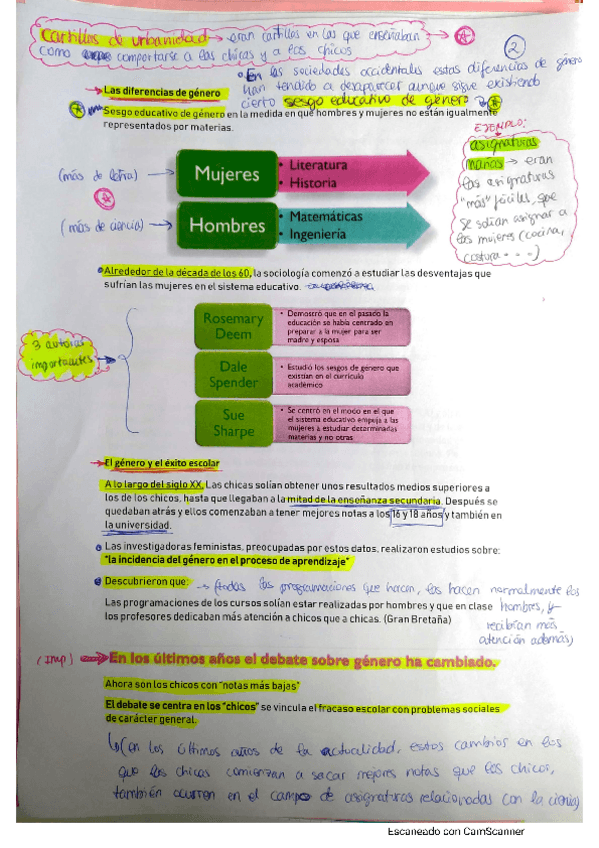 Cartillas de urbanidad → eran cartillas en las que enseñaban
como comportarse a las chicas y a los chicos
2
En las sociedades occidentales estas diferencias de género
han tendido a desaparecer aunque sigue existiendo
cierto sesgo educativo de género
Las diferencias de género
Sesgo educativo de género en la medida en que hombres y mujeres no están igualmente
representados por materias.
EJEMPLO:
asignaturas
marías → eran
las asignaturas
"más" fáciles, que
se solían asignar a
las mujeres (cocina,
costura...)
(más de letra)
Mujeres
• Literatura
• Historia
(más de ciencia)
Hombres
• Matemáticas
• Ingeniería
Alrededor de la década de los 60, la sociología comenzó a estudiar las desventajas que
sufrían las mujeres en el sistema educativo.
3 autoras
importantes
Rosemary
Deem
• Demostró que en el pasado la
educación se había centrado en
preparar a la mujer para ser
madre y esposa
Dale
Spender
• Estudió los sesgos de género que
existían en el currículo
académico
Sue
Sharpe
• Se centró en el modo en el que
el sistema educativo empuja a las
mujeres a estudiar determinadas
materias y no otras
El género y el éxito escolar
A lo largo del siglo XX. Las chicas solían obtener unos resultados medios superiores a
los de los chicos, hasta que llegaban a la mitad de la enseñanza secundaria. Después se
quedaban atrás y ellos comenzaban a tener mejores notas a los 16 y 18 años y también en
la universidad.
Las investigadoras feministas, preocupadas por estos datos, realizaron estudios sobre:
"la incidencia del género en el proceso de aprendizaje"
Descubrieron que: → todas las programaciones que hacen, las hacen normalmente los
Las programaciones de los cursos solían estar realizadas por hombres y que en clase hombres, y
los profesores dedicaban más atención a chicos que a chicas. (Gran Bretaña)
recibían más
atención además)
(Imp) En los últimos años el debate sobre género ha cambiado.
Ahora son los chicos con "notas más bajas"
El debate se centra en los "chicos" se vincula el fracaso escolar con problemas sociales
de carácter general.
(en los últimos años de la actualidad, estos cambios en los
que las chicas comienzan a sacar mejores notas que los chicos,
también ocurren en el campo de asignaturas relacionadas con la ciencia)
Escaneado con CamScanner